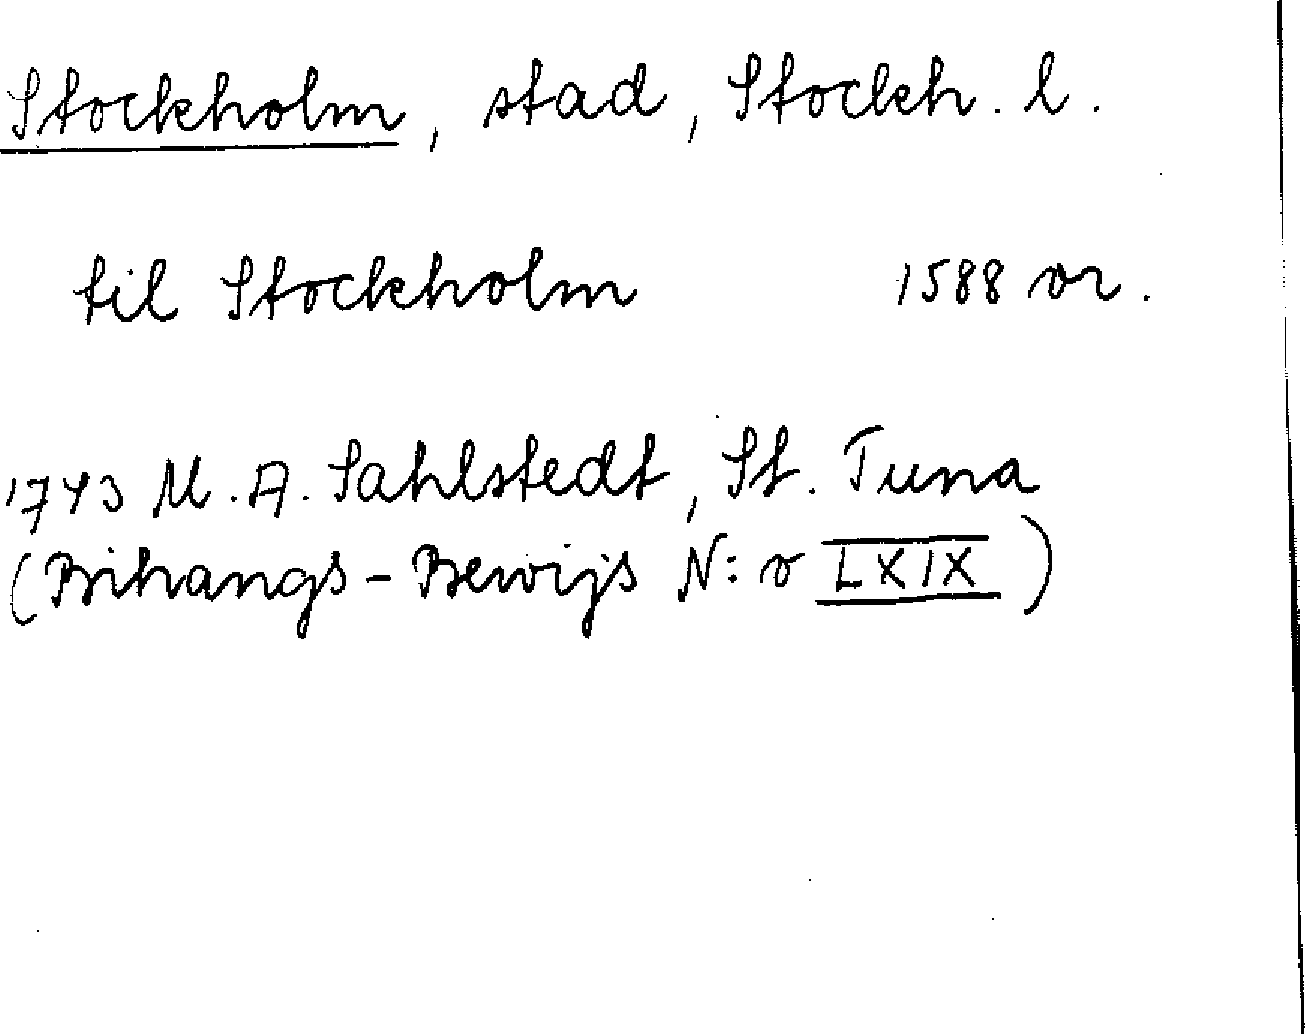 Stockholm, stad, Stockh. l.
til Stockholm 1588 or.
1743 M. A. Sahlstedt, St. Tuna
(Bihangs-Bewijs N:o LXIX)